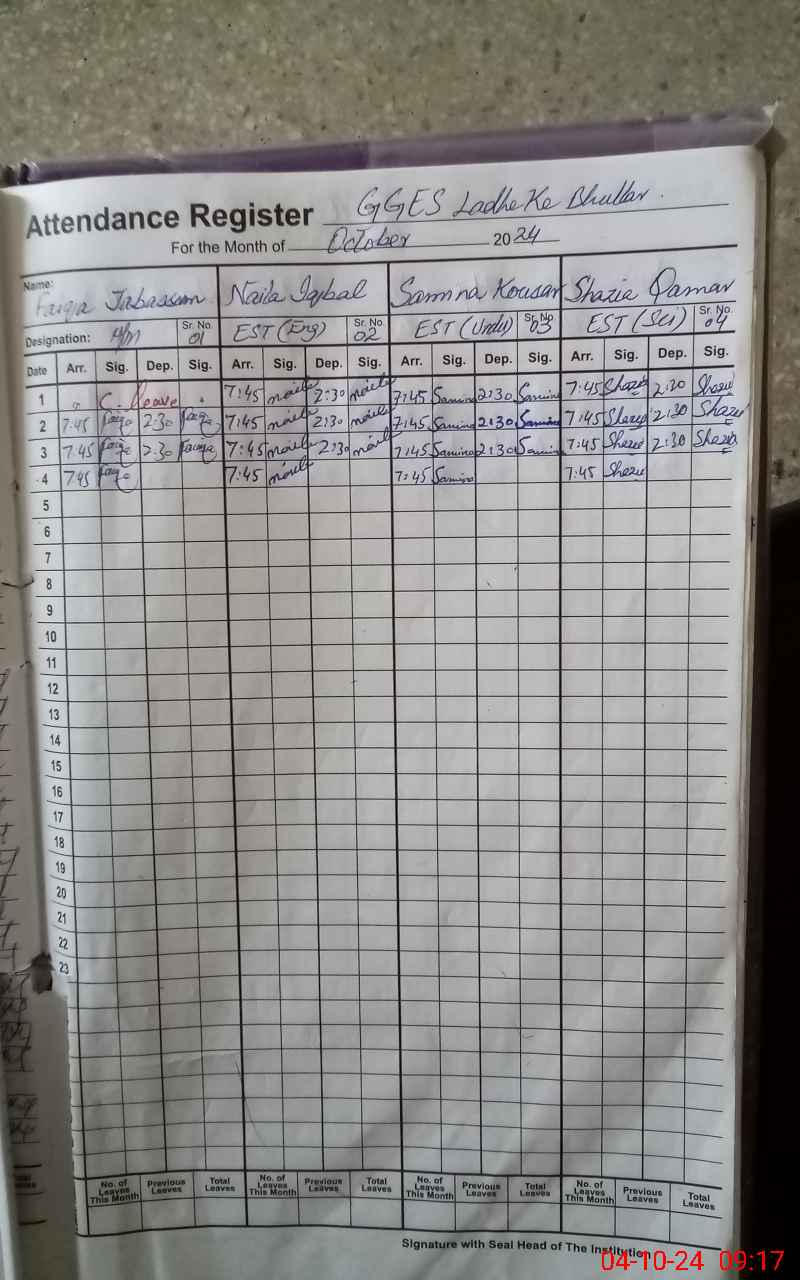 Attendance Register GGES Ladheke Bhullar.
For the Month of October 2024
Name: Faiqa Tabassum Naila Iqbal Samina Kousar Shazia Qamar
Designation: Sr. No. 01 EST (Eng) Sr. No. 02 EST (Urdu) Sr. No. 03 EST (Sci) Sr. No. 04
Date Arr. Sig. Dep. Sig. Arr. Sig. Dep. Sig. Arr. Sig. Dep. Sig. Arr. Sig. Dep. Sig.
1 C. leave 7:45 naila 2:30 naila 7:45 Samina 2:30 Samina 7:45 Shazia 2:30 Shazia
2 7:45 Faiqa 2:30 Faiqa 7:45 naila 2:30 naila 7:45 Samina 2:30 Samina 7:45 Shazia 2:30 Shazia
3 7:45 Faiqa 2:30 Faiqa 7:45 naila 2:30 naila 7:45 Samina 2:30 Samina 7:45 Shazia 2:30 Shazia
4 7:45 Faiqa 7:45 naila 7:45 Samina 7:45 Shazia
5
6
7
8
9
10
11
12
13
14
15
16
17
18
19
20
21
22
23
No. of Leaves This Month Previous Leaves Total Leaves No. of Leaves This Month Previous Leaves Total Leaves No. of Leaves This Month Previous Leaves Total Leaves No. of Leaves This Month Previous Leaves Total Leaves
Signature with Seal Head of The Institution
04-10-24 09:17